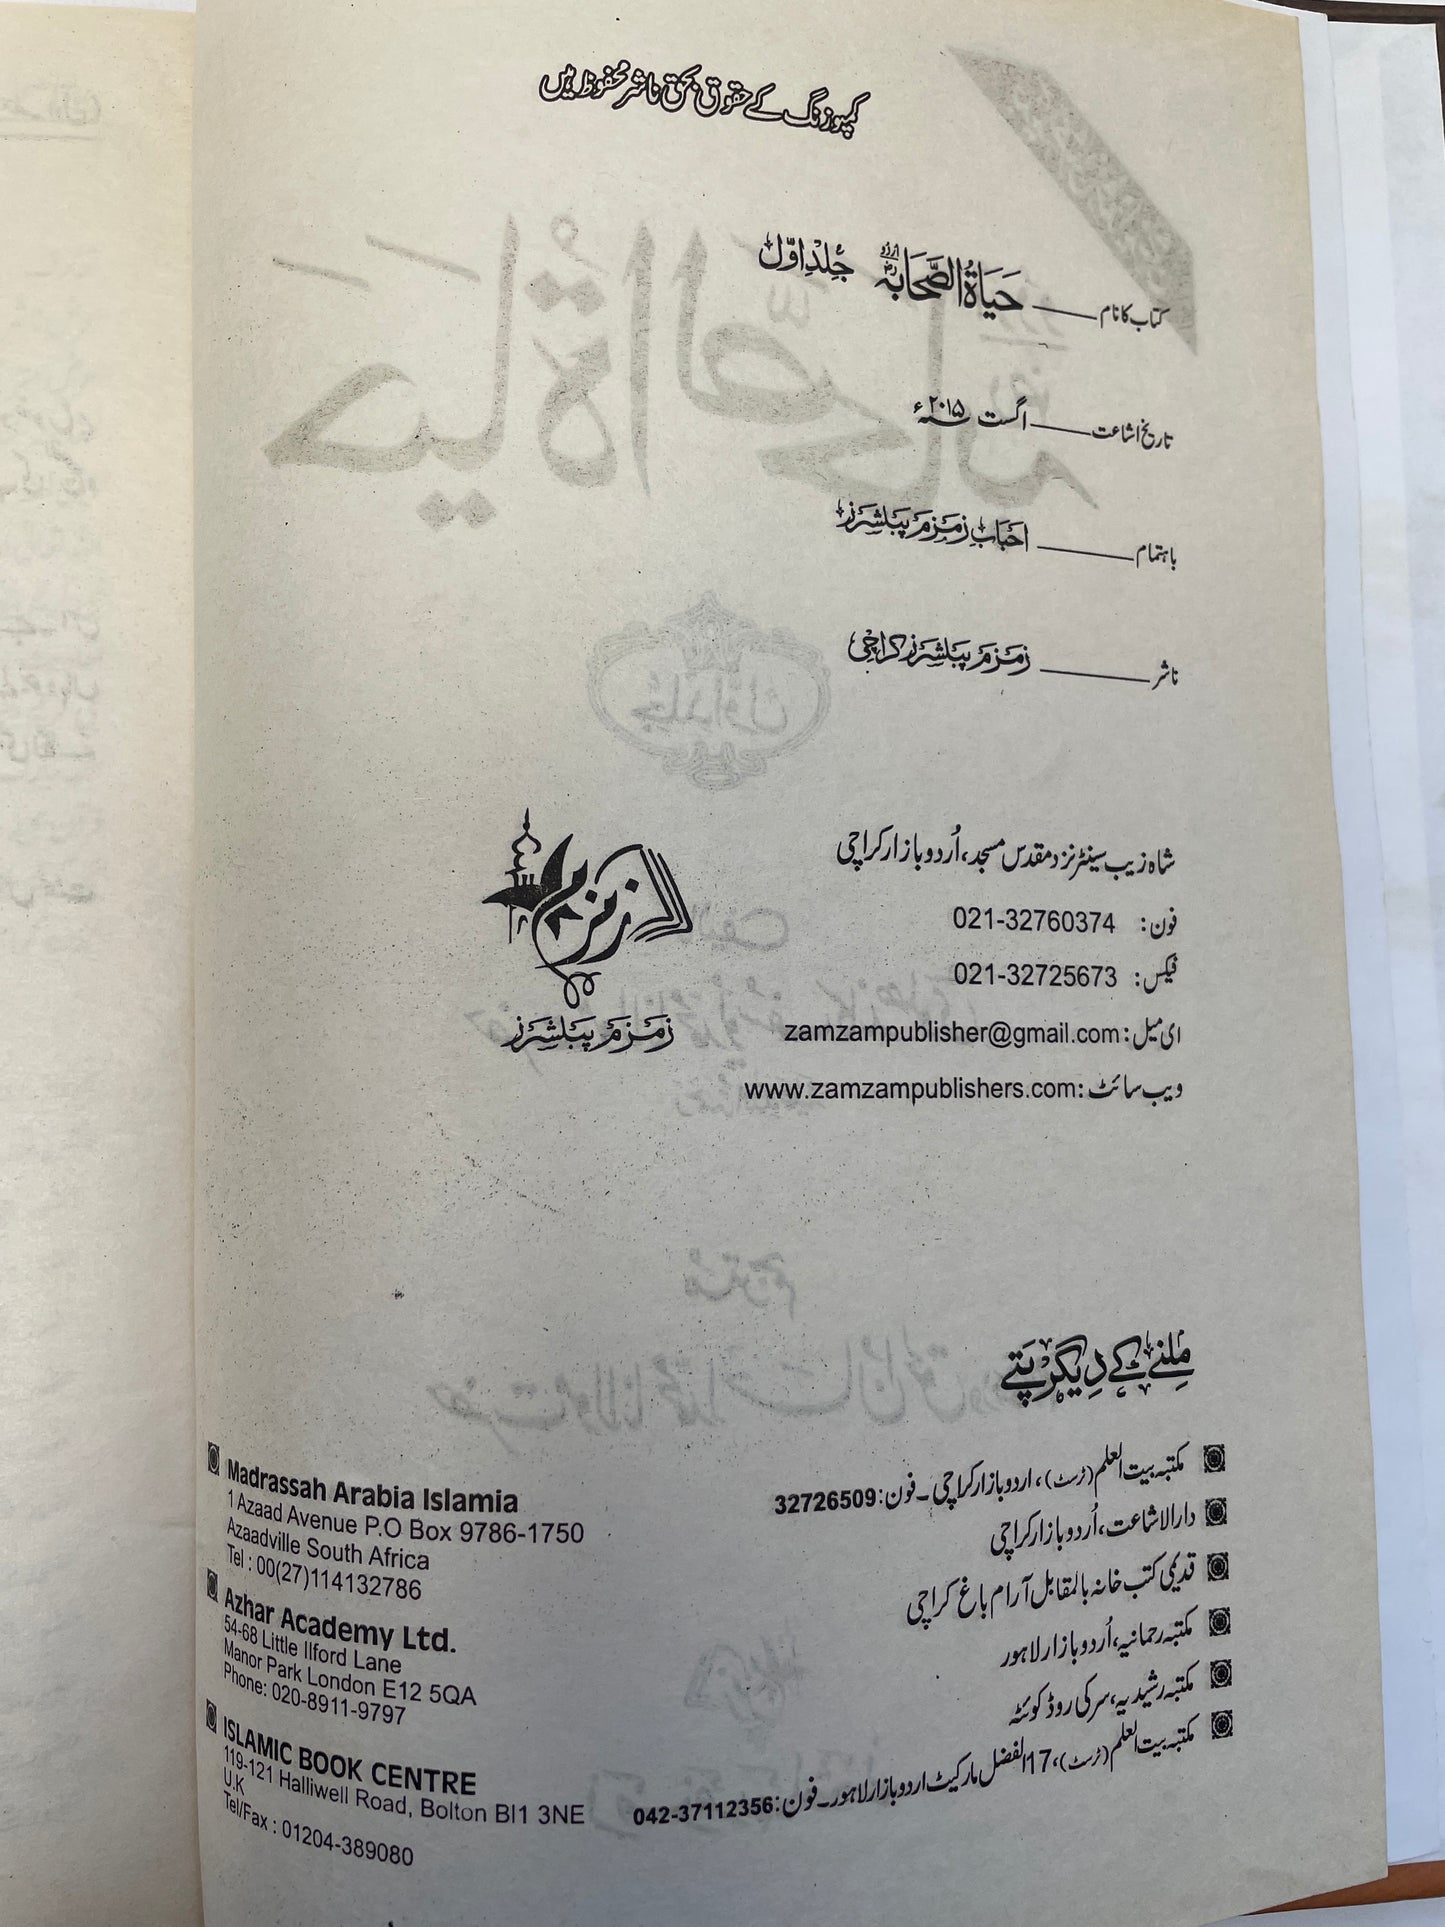 کمپوزنگ کے حقوق بحق ناشر محفوظ ہیں
کتاب کا نام ــــــــ حَیَاۃُ الصَّحَابَہ اردو جُلدِ اوّل
تاریخ اشاعت ــــــــ اگست ۲۰۱۵ء
باہتمام ــــــــ احباب زمزم پبلشرز
ناشر ــــــــ زمزم پبلشرز کراچی
شاہ زیب سینٹر نزد مقدس مسجد، اُردو بازار کراچی
فون: 021-32760374
فیکس: 021-32725673
ای میل: zamzampublisher@gmail.com
ویب سائٹ: www.zamzampublishers.com
زمزم
زمزم پبلشرز
ملنے کے دیگر پتے
مکتبہ بیت العلم (ٹرسٹ)، اردو بازار کراچی۔ فون: 32726509
دارالاشاعت، اُردو بازار کراچی
قدیمی کتب خانہ بالمقابل آرام باغ کراچی
مکتبہ رحمانیہ، اُردو بازار لاہور
مکتبہ رشیدیہ، سرکی روڈ کوئٹہ
مکتبہ بیت العلم (ٹرسٹ)، 17 الفضل مارکیٹ اردو بازار لاہور۔ فون: 042-37112356
Madrassah Arabia Islamia
1 Azaad Avenue P.O Box 9786-1750
Azaadville South Africa
Tel : 00(27)114132786
Azhar Academy Ltd.
54-68 Little Ilford Lane
Manor Park London E12 5QA
Phone: 020-8911-9797
ISLAMIC BOOK CENTRE
119-121 Halliwell Road, Bolton Bl1 3NE
U.K
Tel/Fax : 01204-389080